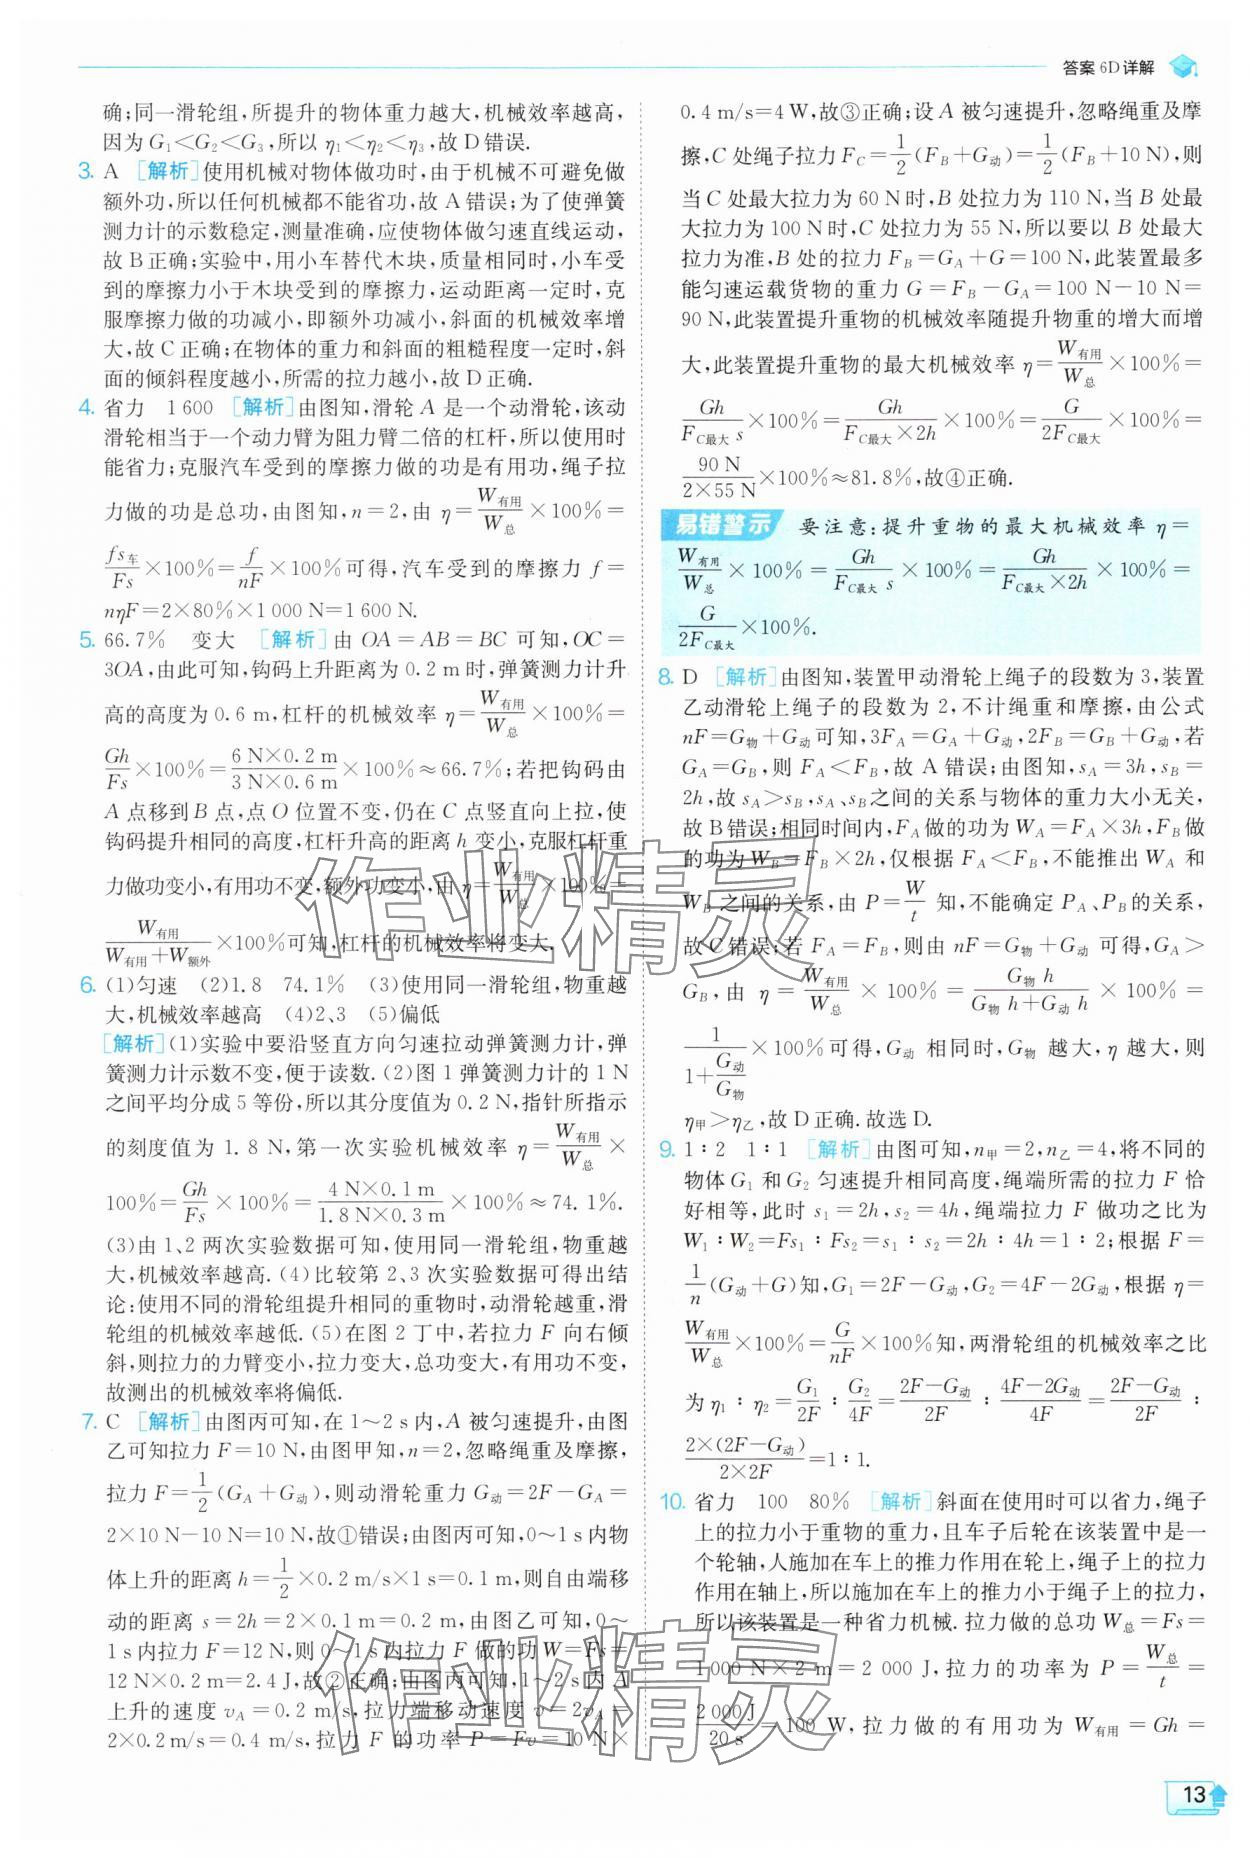 答案 6D详解
确;同一滑轮组,所提升的物体重力越大,机械效率越高,
因为 G₁＜G₂＜G₃,所以 η₁＜η₂＜η₃,故 D 错误.
3. A [解析]使用机械对物体做功时,由于机械不可避免做
额外功,所以任何机械都不能省功,故 A 错误;为了使弹簧
测力计的示数稳定,测量准确,应使物体做匀速直线运动,
故 B 正确;实验中,用小车替代木块,质量相同时,小车受
到的摩擦力小于木块受到的摩擦力,运动距离一定时,克
服摩擦力做的功减小,即额外功减小,斜面的机械效率增
大,故 C 正确;在物体的重力和斜面的粗糙程度一定时,斜
面的倾斜程度越小,所需的拉力越小,故 D 正确.
4. 省力 1 600 [解析]由图知,滑轮 A 是一个动滑轮,该动
滑轮相当于一个动力臂为阻力臂二倍的杠杆,所以使用时
能省力;克服汽车受到的摩擦力做的功是有用功,绳子拉
力做的功是总功,由图知,n＝2,由 η＝W有用/W总×100%＝
fs车/Fs×100%＝f/nF×100%可得,汽车受到的摩擦力 f＝
nηF＝2×80%×1 000 N＝1 600 N.
5. 66.7% 变大 [解析]由 OA＝AB＝BC 可知,OC＝
3OA,由此可知,钩码上升距离为 0.2 m 时,弹簧测力计升
高的高度为 0.6 m,杠杆的机械效率 η＝W有用/W总×100%＝
Gh/Fs×100%＝6 N×0.2 m/3 N×0.6 m×100%≈66.7%;若把钩码由
A 点移到 B 点,点 O 位置不变,仍在 C 点竖直向上拉,使
钩码提升相同的高度,杠杆升高的距离 h 变小,克服杠杆重
力做功变小,有用功不变,额外功变小,由 η＝W有用/W总×100%＝
W有用/W有用＋W额外×100%可知,杠杆的机械效率将变大.
6. (1)匀速 (2)1.8 74.1% (3)使用同一滑轮组,物重越
大,机械效率越高 (4)2、3 (5)偏低
[解析](1)实验中要沿竖直方向匀速拉动弹簧测力计,弹
簧测力计示数不变,便于读数.(2)图 1 弹簧测力计的 1 N
之间平均分成 5 等份,所以其分度值为 0.2 N,指针所指示
的刻度值为 1.8 N,第一次实验机械效率 η＝W有用/W总×
100%＝Gh/Fs×100%＝4 N×0.1 m/1.8 N×0.3 m×100%≈74.1%.
(3)由 1、2 两次实验数据可知,使用同一滑轮组,物重越
大,机械效率越高.(4)比较第 2、3 次实验数据可得出结
论:使用不同的滑轮组提升相同的重物时,动滑轮越重,滑
轮组的机械效率越低.(5)在图 2 丁中,若拉力 F 向右倾
斜,则拉力的力臂变小,拉力变大,总功变大,有用功不变,
故测出的机械效率将偏低.
7. C [解析]由图丙可知,在 1～2 s 内,A 被匀速提升,由图
乙可知拉力 F＝10 N,由图甲知,n＝2,忽略绳重及摩擦,
拉力 F＝1/2(G_A＋G动),则动滑轮重力 G动＝2F－G_A＝
2×10 N－10 N＝10 N,故①错误;由图丙可知,0～1 s 内物
体上升的距离 h＝1/2×0.2 m/s×1 s＝0.1 m,则自由端移
动的距离 s＝2h＝2×0.1 m＝0.2 m,由图乙可知,0～
1 s 内拉力 F＝12 N,则 0～1 s 内拉力 F 做的功 W＝Fs＝
12 N×0.2 m＝2.4 J,故②正确;由图丙可知,1～2 s 内 A
上升的速度 v_A＝0.2 m/s,拉力端移动速度 v＝2v_A＝
2×0.2 m/s＝0.4 m/s,拉力 F 的功率 P＝Fv＝10 N×
0.4 m/s＝4 W,故③正确;设 A 被匀速提升,忽略绳重及摩
擦,C 处绳子拉力 F_C＝1/2(F_B＋G动)＝1/2(F_B＋10 N),则
当 C 处最大拉力为 60 N 时,B 处拉力为 110 N,当 B 处最
大拉力为 100 N 时,C 处拉力为 55 N,所以要以 B 处最大
拉力为准,B 处的拉力 F_B＝G_A＋G＝100 N,此装置最多
能匀速运载货物的重力 G＝F_B－G_A＝100 N－10 N＝
90 N,此装置提升重物的机械效率随提升物重的增大而增
大,此装置提升重物的最大机械效率 η＝W有用/W总×100%＝
Gh/F_C最大 s×100%＝Gh/F_C最大×2h×100%＝G/2F_C最大×100%＝
90 N/2×55 N×100%≈81.8%,故④正确.
易错警示 要注意:提升重物的最大机械效率 η＝
W有用/W总×100%＝Gh/F_C最大 s×100%＝Gh/F_C最大×2h×100%＝
G/2F_C最大×100%.
8. D [解析]由图知,装置甲动滑轮上绳子的段数为 3,装置
乙动滑轮上绳子的段数为 2,不计绳重和摩擦,由公式
nF＝G物＋G动可知,3F_A＝G_A＋G动,2F_B＝G_B＋G动,若
G_A＝G_B,则 F_A＜F_B,故 A 错误;由图知,s_A＝3h,s_B＝
2h,故 s_A＞s_B,s_A、s_B 之间的关系与物体的重力大小无关,
故 B 错误;相同时间内,F_A 做的功为 W_A＝F_A×3h,F_B 做
的功为 W_B＝F_B×2h,仅根据 F_A＜F_B,不能推出 W_A 和
W_B 之间的关系,由 P＝W/t 知,不能确定 P_A、P_B 的关系,
故 C 错误;若 F_A＝F_B,则由 nF＝G物＋G动可得,G_A＞
G_B,由 η＝W有用/W总×100%＝G物 h/G物 h＋G动 h×100%＝
1/(1＋G动/G物)×100%可得,G动 相同时,G物 越大,η 越大,则
η甲＞η乙,故 D 正确.故选 D.
9. 1∶2 1∶1 [解析]由图可知,n甲＝2,n乙＝4,将不同的
物体 G₁ 和 G₂ 匀速提升相同高度,绳端所需的拉力 F 恰
好相等,此时 s₁＝2h,s₂＝4h,绳端拉力 F 做功之比为
W₁∶W₂＝Fs₁∶Fs₂＝s₁∶s₂＝2h∶4h＝1∶2;根据 F＝
1/n(G动＋G)知,G₁＝2F－G动,G₂＝4F－2G动,根据 η＝
W有用/W总×100%＝G/nF×100%知,两滑轮组的机械效率之比
为 η₁∶η₂＝G₁/2F∶G₂/4F＝2F－G动/2F∶4F－2G动/4F＝2F－G动/2F∶
2×(2F－G动)/2×2F＝1∶1.
10. 省力 100 80% [解析]斜面在使用时可以省力,绳子
上的拉力小于重物的重力,且车子后轮在该装置中是一
个轮轴,人施加在车上的推力作用在轮上,绳子上的拉力
作用在轴上,所以施加在车上的推力小于绳子上的拉力,
所以该装置是一种省力机械.拉力做的总功 W总＝Fs＝
1 000 N×2 m＝2 000 J,拉力的功率为 P＝W总/t＝
2 000 J/20 s＝100 W,拉力做的有用功为 W有用＝Gh＝
作业精灵
作业精灵
13